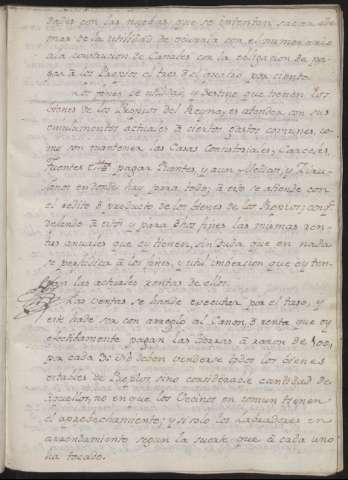 dades con las nuevas que se intentan sacar ade
mas de la utilidad de ocurrir con el numerario
ala construccion de Canales con la obligacion de pa
gar à los Propios el tres ò el quatro por ciento.
Los fines de utilidad, y destino que tienen los
vienes de los Propios del Reyno, es atender con sus
emolumentos actuales à ciertos gastos comunes, co
mo son mantener las Casas Consistoriales, Carceles,
Fuentes pagar Puentes, y aun Medicos, y Ziru-
janos en donde hay para todo; à esto se atiende con
el redito ò producto de los vienes de los Propios;
à estos y para dhos fines las mismas ren-
tas anuales que oy tienen, sin duda que en nada
se perjudica à los fines, y util imbersion que oy ten-
gan las actuales rentas de ellos.
Las ventas se han de executar por el taso, y
este ha de ser con arreglo al Canon, ò renta que oy
pagan las tierras à razon de
por cada deben venderse todos los bienes
estables de Propios sino considerable cantidad de
aquellos, no en que los Vecinos en comun tienen
el aprovechamiento; y si solo los Labradores en
arrendamiento segun la suerte que à cada uno
ha tocado.